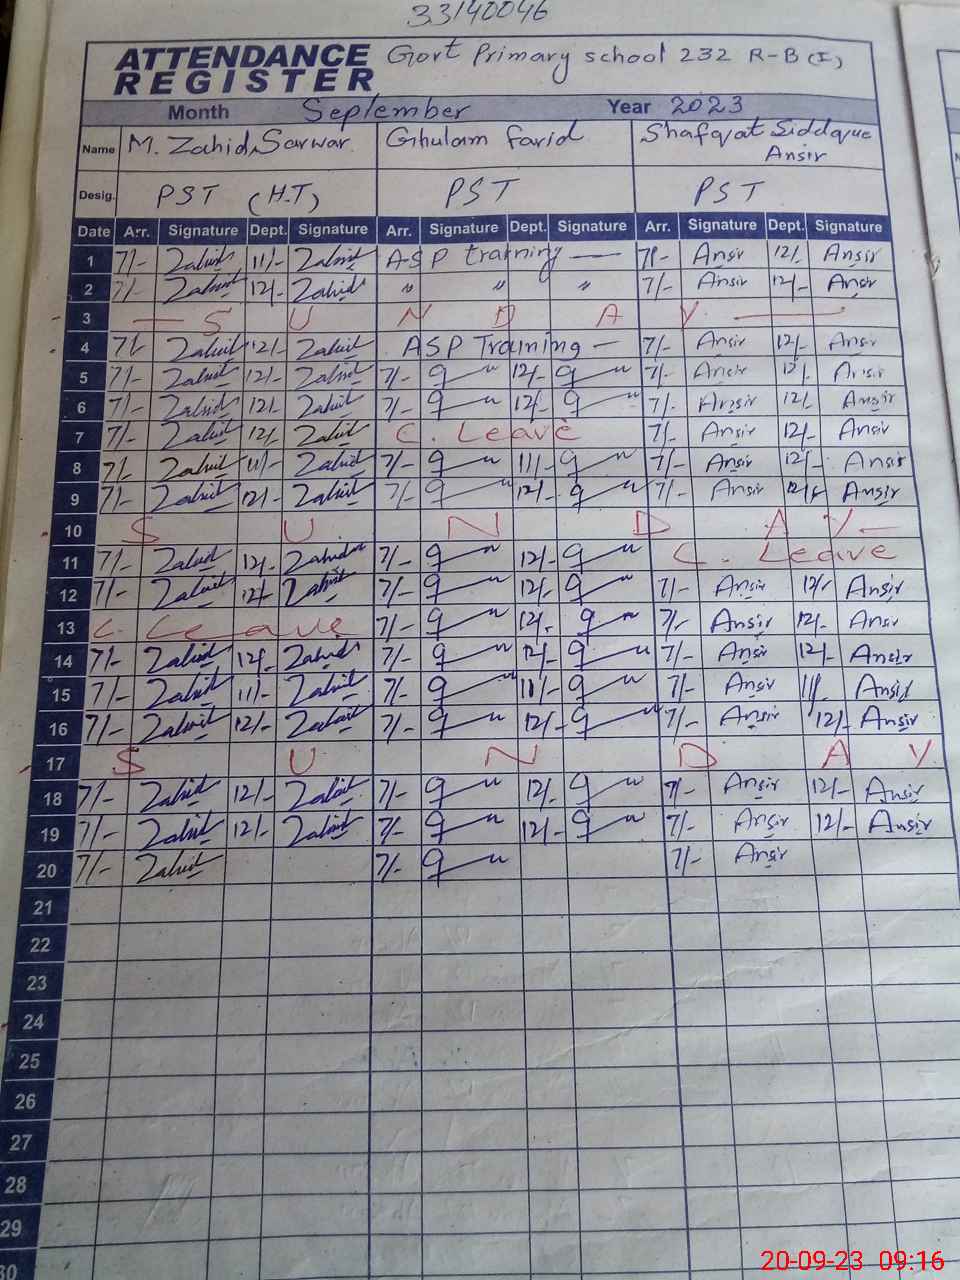 33140046
ATTENDANCE REGISTER Govt Primary school 232 R-B (I)
Month September Year 2023
Name M. Zahid Sarwar Ghulam Farid Shafqat Siddque Ansir
Desig. PST (H.T) PST PST
Date Arr. Signature Dept. Signature Arr. Signature Dept. Signature Arr. Signature Dept. Signature
1 7/- Zahid 11/- Zahid ASP training — 7/- Ansir 12/- Ansir
2 7/- Zahid 12/- Zahid " " " 7/- Ansir 12/- Ansir
3 — S U N D A Y —
4 7/- Zahid 12/- Zahid ASP Training — 7/- Ansir 12/- Ansir
5 7/- Zahid 12/- Zahid 7/- 12/- 7/- Ansir 12/- Ansir
6 7/- Zahid 12/- Zahid 7/- 12/- 7/- Ansir 12/- Ansir
7 7/- Zahid 12/- Zahid C. Leave 7/- Ansir 12/- Ansir
8 7/- Zahid 11/- Zahid 7/- 11/- 7/- Ansir 12/- Ansir
9 7/- Zahid 12/- Zahid 7/- 12/- 7/- Ansir 12/- Ansir
10 S U N D A Y —
11 7/- Zahid 12/- Zahid 7/- 12/- C. Leave
12 7/- Zahid 12/- Zahid 7/- 12/- 7/- Ansir 12/- Ansir
13 C. Leave 7/- 12/- 7/- Ansir 12/- Ansir
14 7/- Zahid 12/- Zahid 7/- 12/- 7/- Ansir 12/- Ansir
15 7/- Zahid 11/- Zahid 7/- 11/- 7/- Ansir 11/- Ansir
16 7/- Zahid 12/- Zahid 7/- 12/- 7/- Ansir 12/- Ansir
17 S U N D A Y
18 7/- Zahid 12/- Zahid 7/- 12/- 7/- Ansir 12/- Ansir
19 7/- Zahid 12/- Zahid 7/- 12/- 7/- Ansir 12/- Ansir
20 7/- Zahid 7/- 7/- Ansir
21
22
23
24
25
26
27
28
29
30
20-09-23 09:16